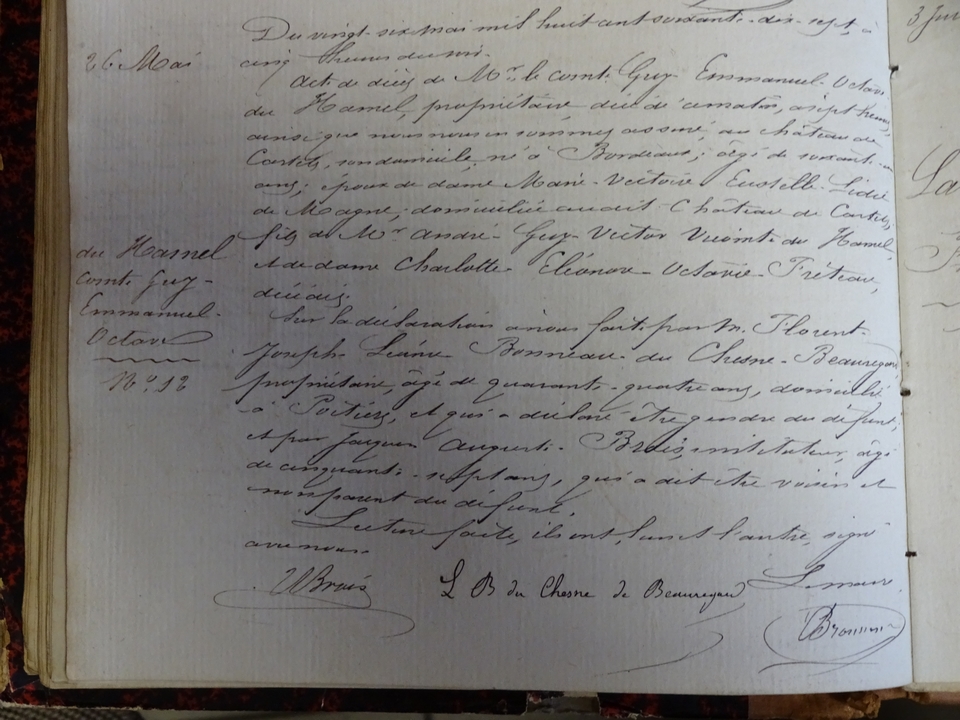 Du vingt-six mai mil huit cent soixante-dix-sept, à
26 Mai
cinq heures du soir.
Acte de décès de Mr. le comte Guy-Emmanuel-Octave
du Hamel, propriétaire, décédé ce matin, à sept heures,
ainsi que nous nous en sommes assuré, au château de
Castets, son domicile, né à Bordeaux, âgé de soixante-
ans, époux de dame Marie-Victoire Eustelle-Lidie
de Magne, domiciliée audit Château de Castets,
fils de Mr André-Guy-Victor Vicomte du Hamel,
et de dame Charlotte-Eléonore-Octavie-Fréteau,
décédés.
du Hamel
comte Guy-
Emmanuel-
Octave
No. 12
Sur la déclaration à nous faite par M. Florent-
Joseph-Léonce Bonneau-du Chesne-Beauregard
propriétaire, âgé de quarante-quatre ans, domicilié
à Poitiers, et qui a déclaré être gendre du défunt,
et par Jacques Auguste-Brois, instituteur, âgé
de cinquante-sept ans, qui a dit être voisin et
non parent du défunt.
Lecture faite, ils ont, l'un et l'autre, signé
avec nous.
Brois
L B du Chesne de Beauregard
Le maire
3
La